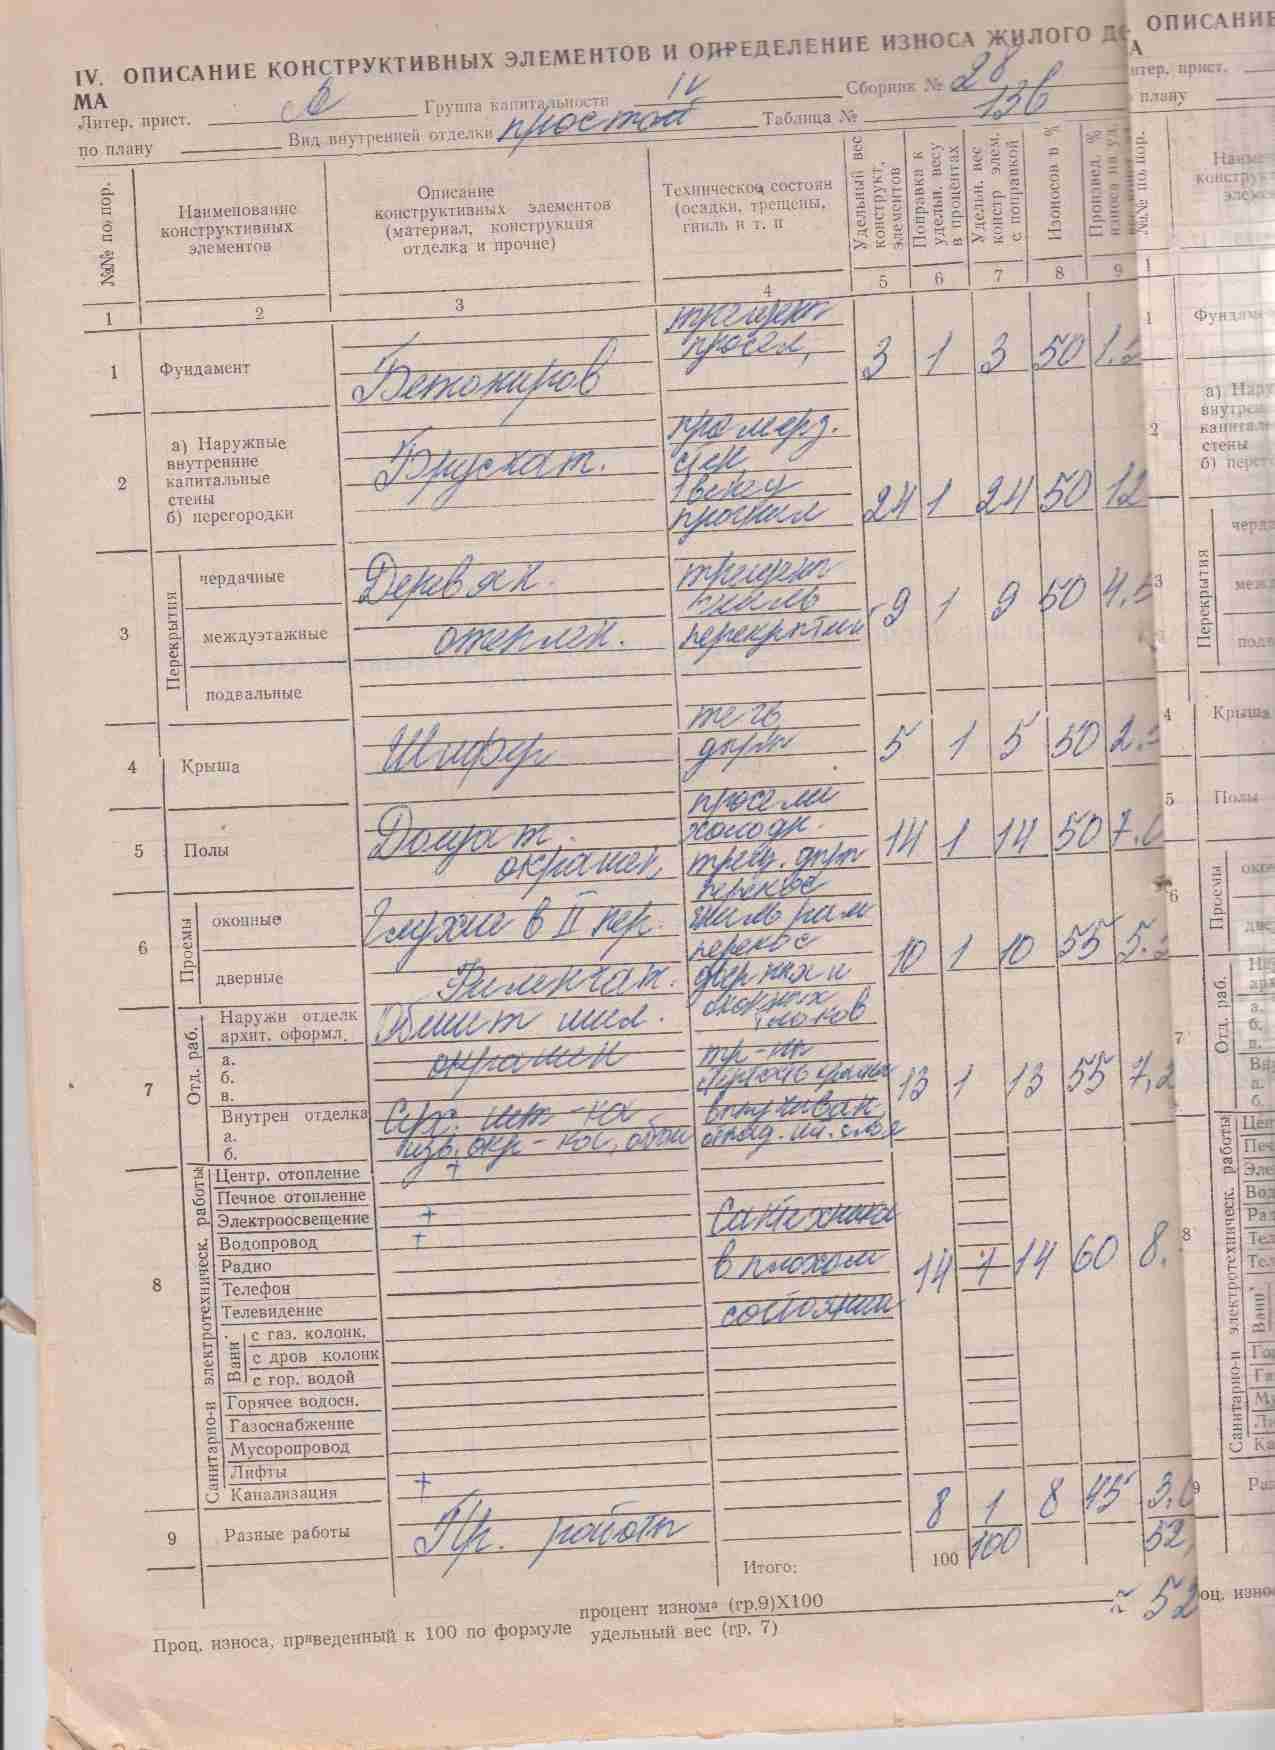 IV. ОПИСАНИЕ КОНСТРУКТИВНЫХ ЭЛЕМЕНТОВ И ОПРЕДЕЛЕНИЕ ИЗНОСА ЖИЛОГО ДО
МА
Литер. прист. Группа капитальности IV Сборник № 28
по плану Вид внутренней отделки простой Таблица № 13б
№№ по пор.
Наименование
конструктивных
элементов
Описание
конструктивных элементов
(материал, конструкция
отделка и прочие)
Техническое состоян
(осадки, трещены,
гниль и т. п
Удельный вес
конструкт,
элементов
Поправка к
удельн. весу
в процентах
Удельн. вес
констр элем.
с поправкой
Изоносов в %
Произвед. %
1 2 3 4 5 6 7 8 9
1 Фундамент Бетониров трещены просел, 3 1 3 50
2
а) Наружные
внутренние
капитальные
стены
б) перегородки
Брускат.
промерз.
стен,
1 венец
прогнил
24 1 24 50 12
3 Перекрытия
чердачные
междуэтажные
подвальные
Деревян.
отеплен.
трещены
гниль
перекрытий
9 1 9 50
4 Крыша Шифер течь
дыры
5 1 5 50
5 Полы Дощат.
окрашен,
просели
холодн.
трещ. дыры
14 1 14 50
6 Проемы
оконные
дверные
Глухие в II пер.
Филенчат.
перекос
гниль рам
перекос
дверных и
оконных
блоков
10 1 10 55
7 Отд. раб.
Наружн отделк
архит. оформл.
а.
б.
в.
Внутрен отделка
а.
б.
Обшит шел.
окрашен
13 1 13 55 7,2
8 Санитарно-и электротехническ. работы
Центр. отопление +
Печное отопление
Электроосвещение +
Водопровод +
Радио
Телефон
Телевидение
Ванн
с газ. колонк.
с дров колонк
с гор. водой
Горячее водосн.
Газоснабжение
Мусоропровод
Лифты
Канализация +
Сантехника
в плохом
состоянии
14 1 14 60 8.
9 Разные работы Пр. работы 8 1 8 45
Итого: 100 100 52,
процент изнома (гр.9)X100
Проц. износа, приведенный к 100 по формуле
удельный вес (гр. 7)
≈ 52
ОПИСАНИЕ
А
итер, прист.
плану
№№ по пор.
1
1 Фундам
2
а) Нару
внутрен
капиталь
стены
б) перег
3 Перекрытия
черда
меж
подв
4 Крыша
5 Полы
6 Проемы
око
7 Отд. раб.
а.
б.
в.
а.
б.
8 Санитарно-и электротехническ. работы
Печ
Эле
Вод
Рад
Тел
Тел
Ванн
Гор
Га
Му
Ли
Ка
9 Раз
оц. износ